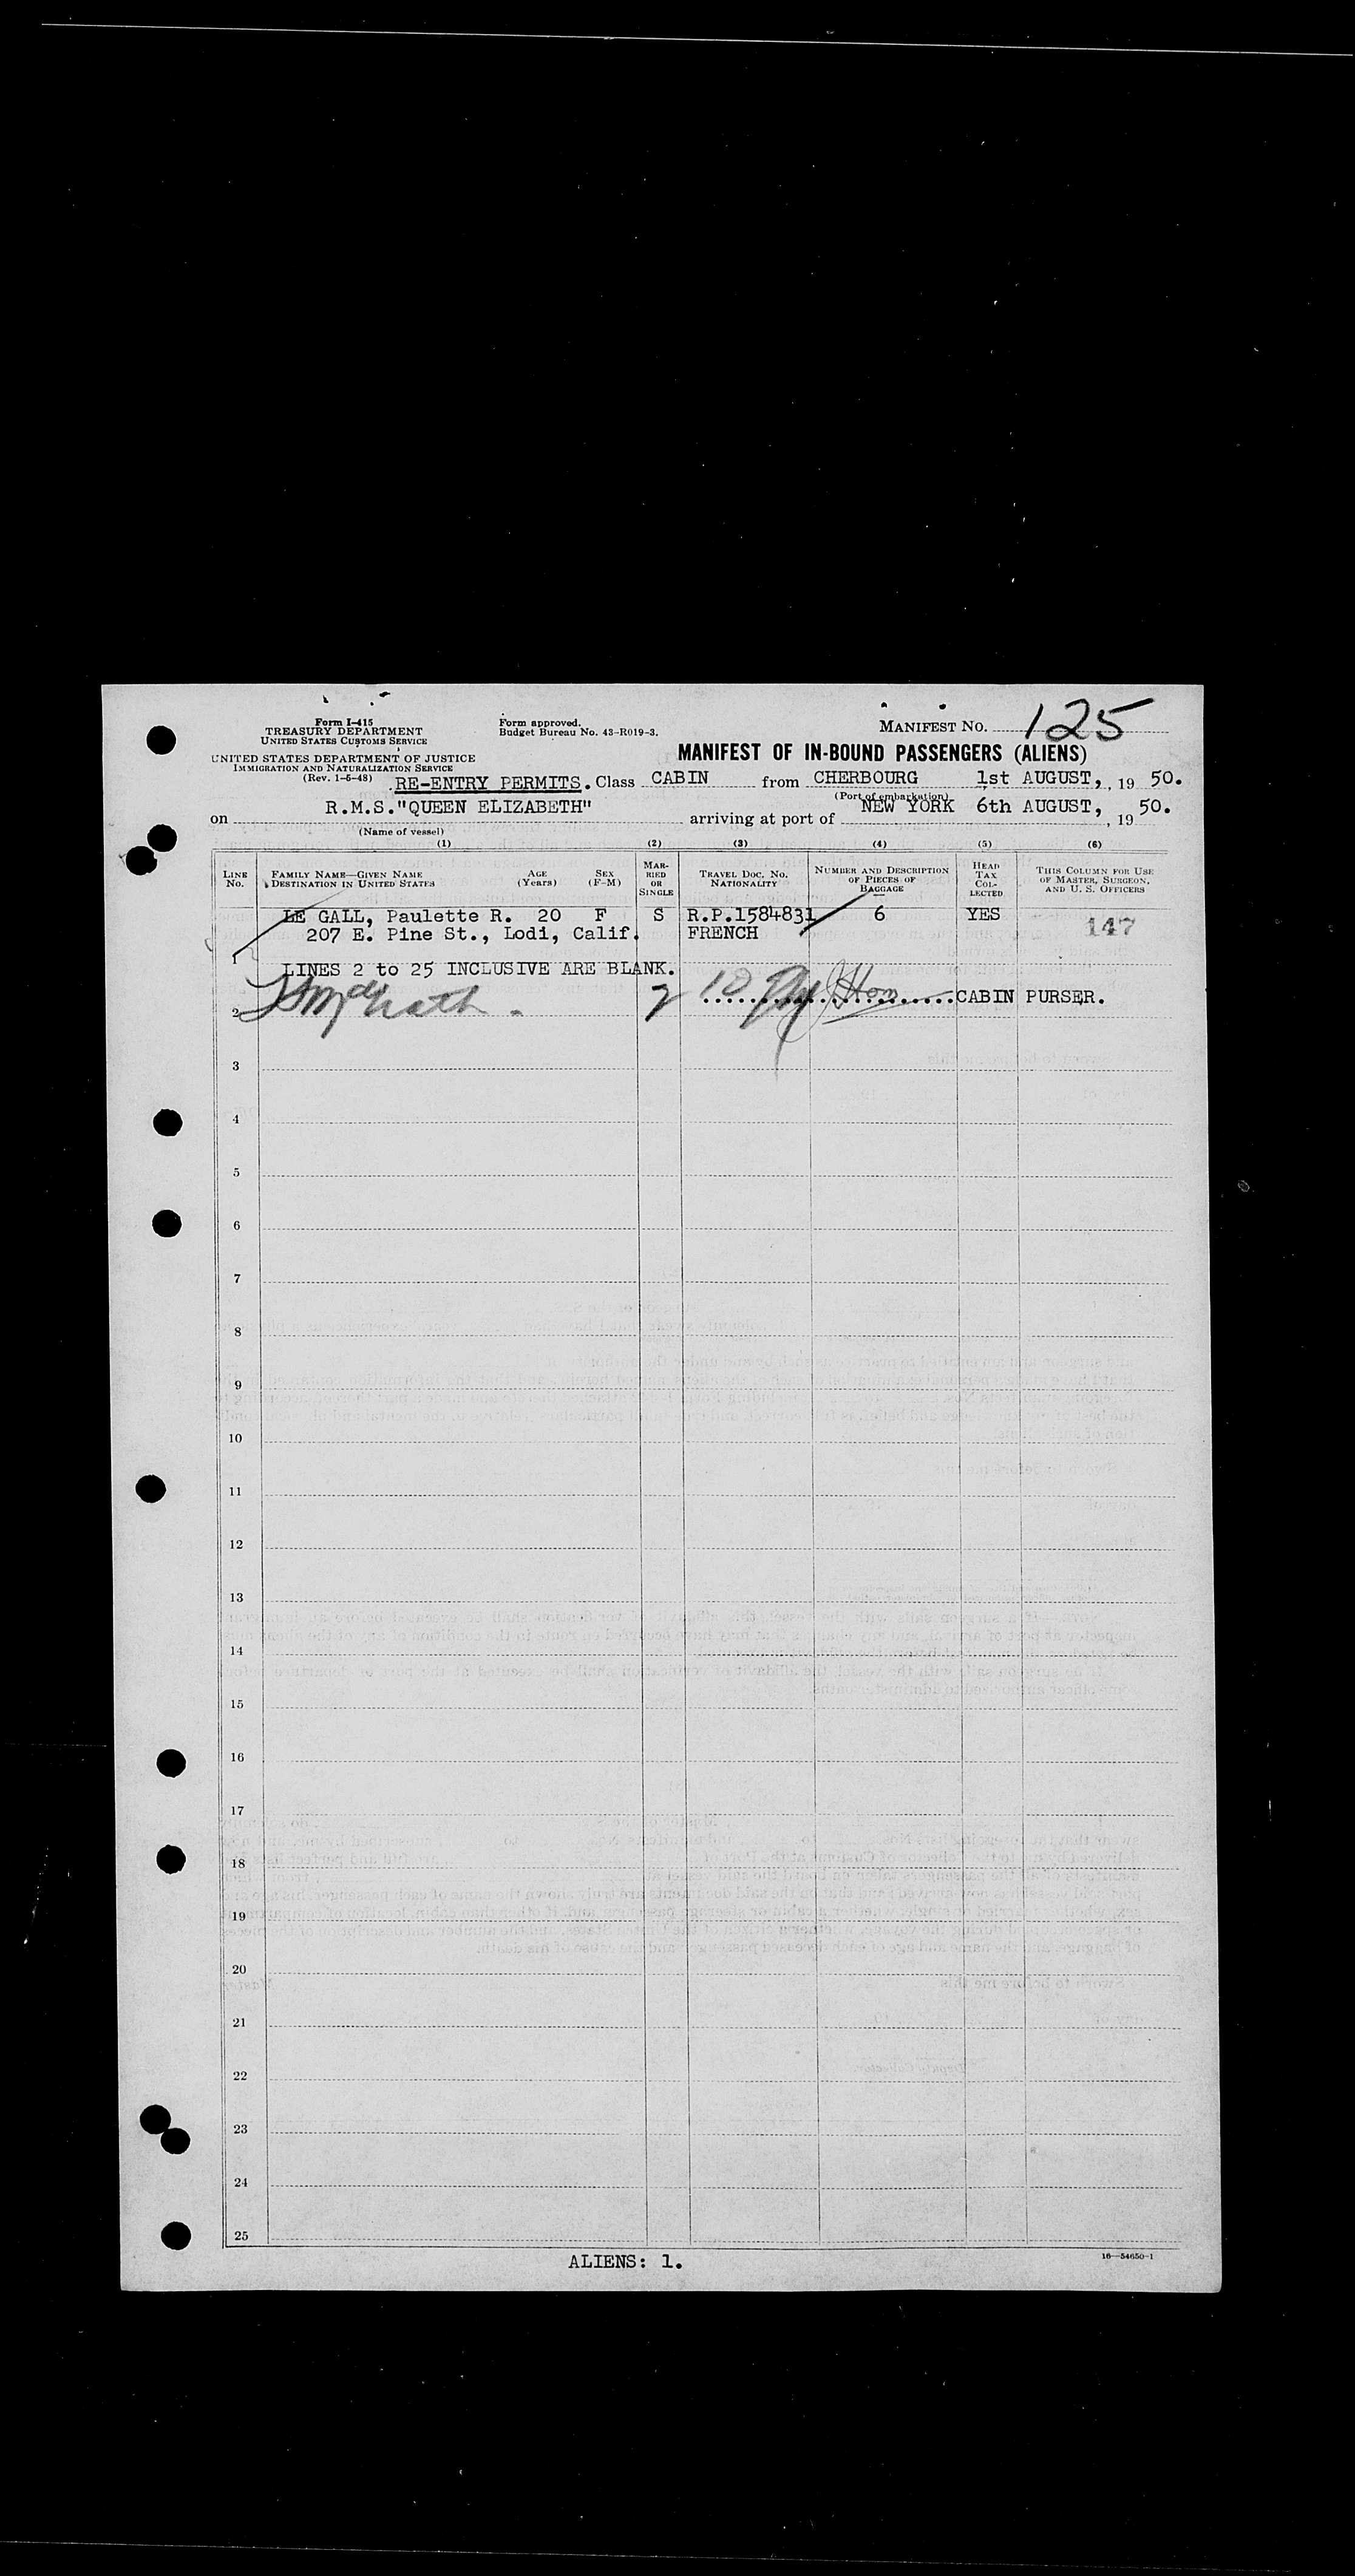 Form I-415
TREASURY DEPARTMENT
UNITED STATES CUSTOMS SERVICE
UNITED STATES DEPARTMENT OF JUSTICE
IMMIGRATION AND NATURALIZATION SERVICE
(Rev. 1-6-48)
Form approved.
Budget Bureau No. 43-R019-3.
MANIFEST NO. 125
MANIFEST OF IN-BOUND PASSENGERS (ALIENS)
RE-ENTRY PERMITS. Class CABIN from CHERBOURG 1st AUGUST, , 19 50.
(Port of embarkation)
on R.M.S."QUEEN ELIZABETH" arriving at port of NEW YORK 6th AUGUST, , 19 50.
(Name of vessel)
(1) (2) (3) (4) (5) (6)
LINE No. FAMILY NAME—GIVEN NAME DESTINATION IN UNITED STATES AGE (Years) SEX (F-M) MARRIED OR SINGLE TRAVEL DOC. NO. NATIONALITY NUMBER AND DESCRIPTION OF PIECES OF BAGGAGE HEAD TAX COLLECTED THIS COLUMN FOR USE OF MASTER, SURGEON, AND U. S. OFFICERS
LE GALL, Paulette R. 20 F S R.P.1584831 6 YES 147
207 E. Pine St., Lodi, Calif. FRENCH
1
LINES 2 to 25 INCLUSIVE ARE BLANK.
CABIN PURSER.
2
3
4
5
6
7
8
9
10
11
12
13
14
15
16
17
18
19
20
21
22
23
24
25
ALIENS: 1.
16—54650-1